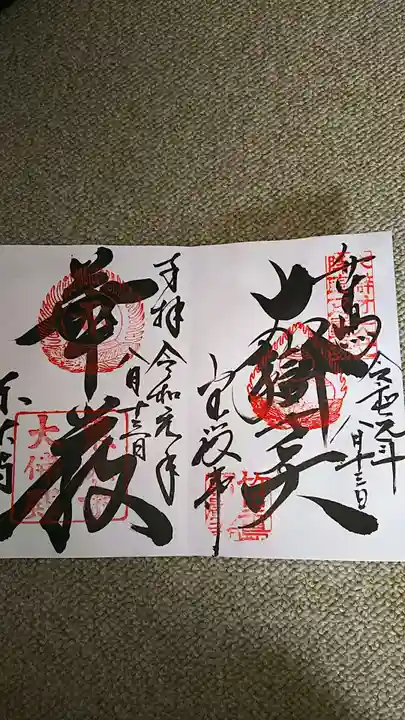 竹生島
令和元年
八月十三日
大辯才天
宝厳寺
奉拝
令和元年
八月十三日
華厳
東大寺
大佛殿